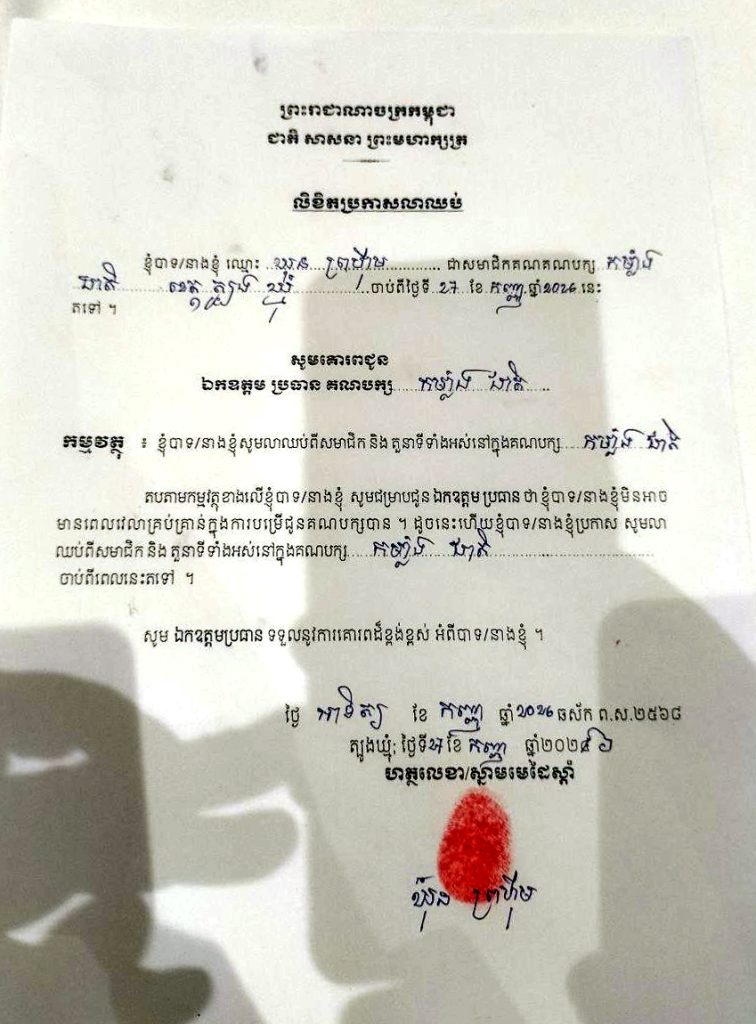 ព្រះរាជាណាចក្រកម្ពុជា
ជាតិ សាសនា ព្រះមហាក្សត្រ
លិខិតប្រកាសលាឈប់
ខ្ញុំបាទ/នាងខ្ញុំ ឈ្មោះ ឃុន ព្រហ៊ីម ជាសមាជិកគណគណបក្ស កម្លាំង
ជាតិ ខេត្ត ត្បូង ឃ្មុំ ចាប់ពីថ្ងៃទី 27 ខែ កញ្ញា ឆ្នាំ 2026 នេះ
តទៅ ។
សូមគោរពជូន
ឯកឧត្តម ប្រធាន គណបក្ស កម្លាំង ជាតិ
កម្មវត្ថុ ៖ ខ្ញុំបាទ/នាងខ្ញុំសូមលាឈប់ពីសមាជិក និង តួនាទីទាំងអស់នៅក្នុងគណបក្ស កម្លាំង ជាតិ
តបតាមកម្មវត្ថុខាងលើខ្ញុំបាទ/នាងខ្ញុំ សូមជម្រាបជូនឯកឧត្តម ប្រធាន ថា ខ្ញុំបាទ/នាងខ្ញុំមិនអាច
មានពេលវេលាគ្រប់គ្រាន់ក្នុងការបម្រើជូនគណបក្សបាន ។ ដូចនេះហើយខ្ញុំបាទ/នាងខ្ញុំប្រកាស សូមលា
ឈប់ពីសមាជិក និង តួនាទីទាំងអស់នៅក្នុងគណបក្ស កម្លាំង ជាតិ
ចាប់ពីពេលនេះតទៅ ។
សូម ឯកឧត្តមប្រធាន ទទួលនូវការគោរពដ៏ខ្ពង់ខ្ពស់ អំពីបាទ/នាងខ្ញុំ ។
ថ្ងៃ អាទិត្យ ខែ កញ្ញា ឆ្នាំ 2026 ឆស័ក ព.ស.២៥៦៨
ត្បូងឃ្មុំ; ថ្ងៃទី 27 ខែ កញ្ញា ឆ្នាំ២០២
ហត្ថលេខា/ស្នាមមេដៃស្តាំ
ឃុន ព្រហ៊ីម